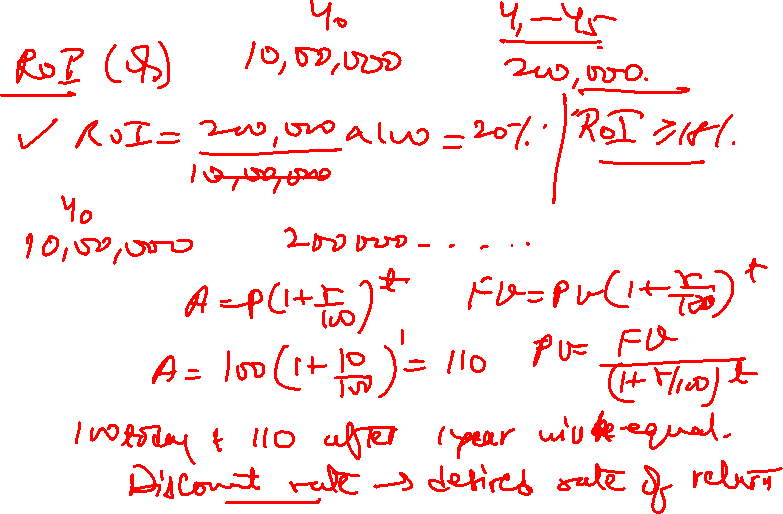 Y0 Y1-Y5
RoI (%) 10,00,000 200,000.
✓ RoI = 200,000/10,00,000 x 100 = 20%. | RoI ≥ 18%.
Y0
10,00,000 200000- . . . .
A = P(1+r/100)^t FV = PV(1+r/100)^t
A = 100(1+10/100)^1 = 110 PV = FV/(1+r/100)^t
100 today & 110 after 1 year will be equal.
Discount rate → desired rate of return